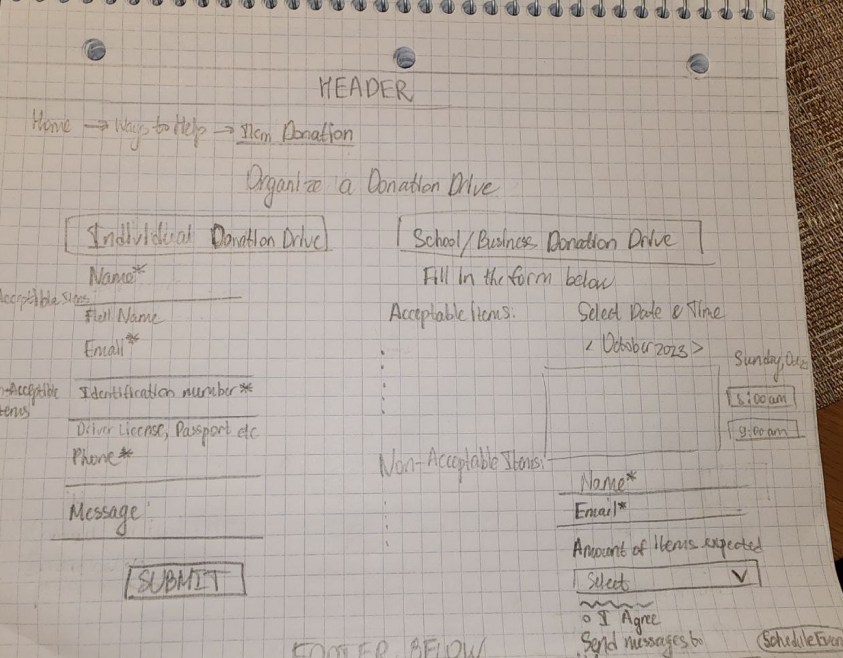 HEADER
Home → Ways to Help → Item Donation
Organize a Donation Drive
Individual Donation Drive
Name*
Acceptible Items
Full Name
Email*
Identification number*
Driver License, Passport etc
Phone*
Message
SUBMIT
School/Business Donation Drive
Fill in the form below
Acceptable Items:
Non-Acceptable Items:
Select Date & Time
< October 2023 >
Sunday,
8:00am
9:00am
Name*
Email*
Amount of Items expected
Select
I Agree
Send messages to
Schedule Even
FOOTER BELOW